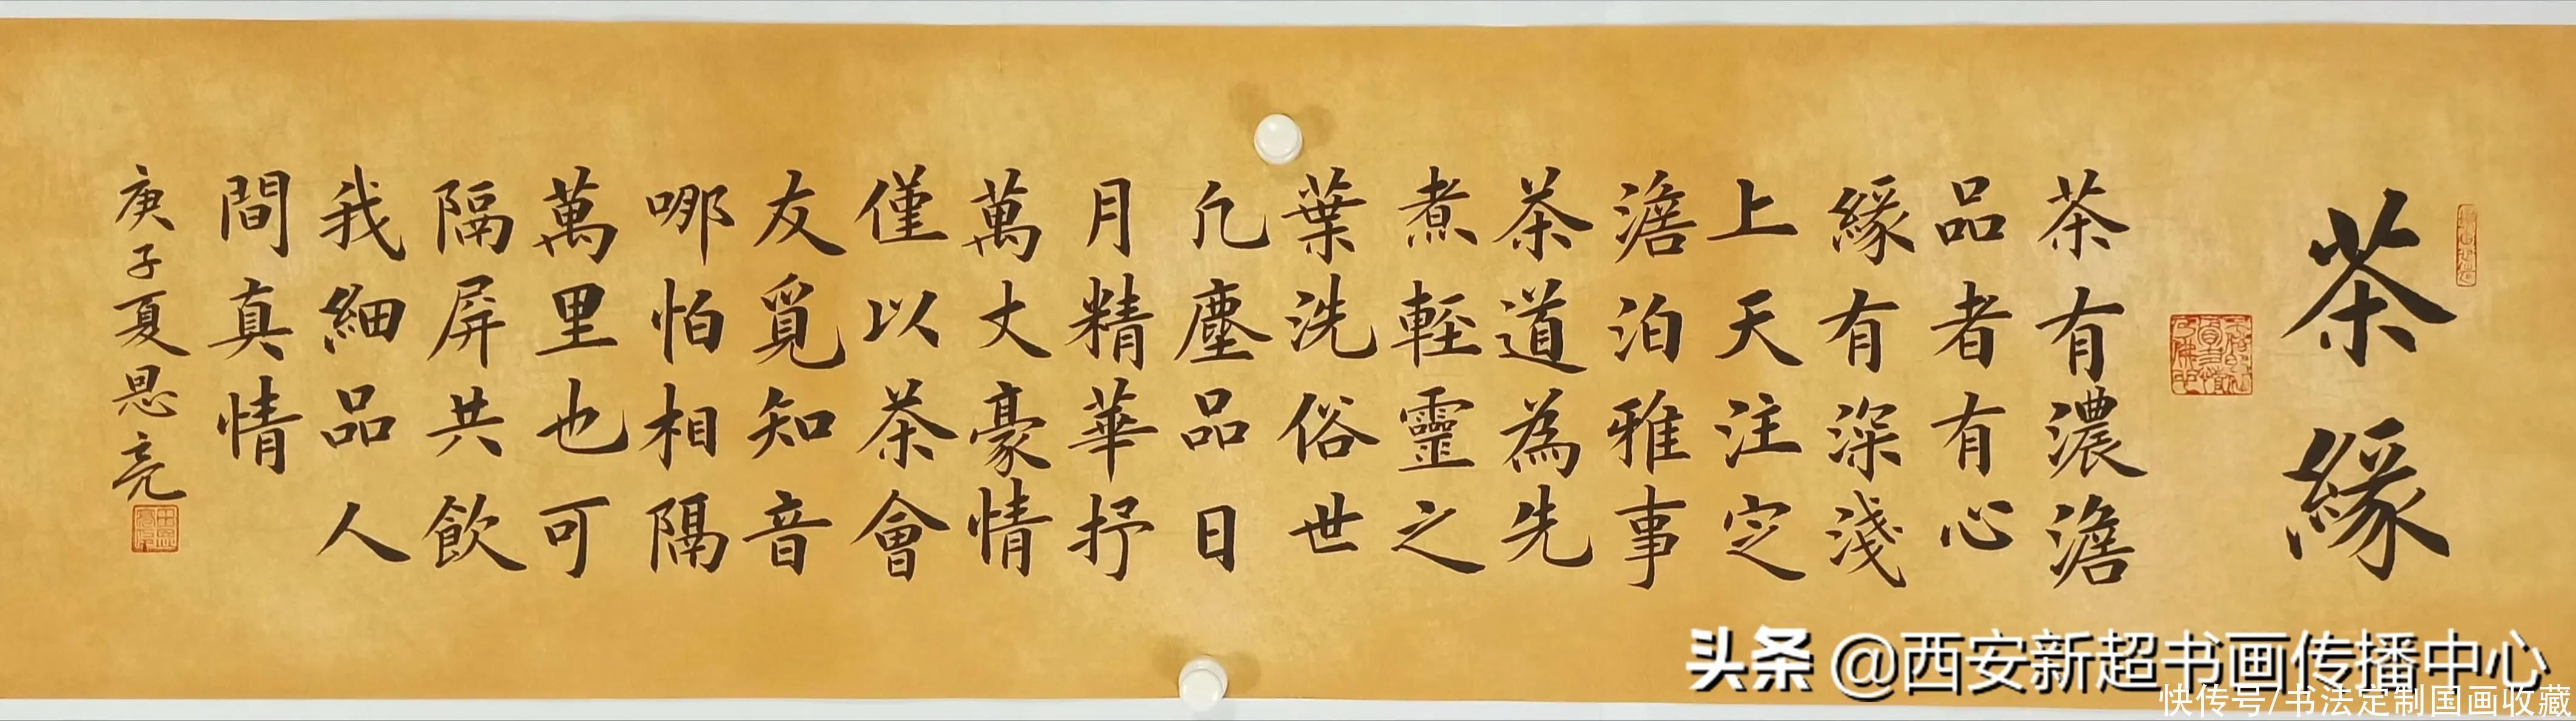 茶緣
茶有濃澹
品者有心
緣有深淺
上天注定
澹泊雅事
茶道為先
煮輕靈之
葉洗俗世
凢塵品日
月精華抒
萬丈豪情
僅以茶會
友覓知音
哪怕相隔
萬里也可
隔屏共飲
我細品人
間真情
庚子夏思亮
头条 @西安新超书画传播中心
快传号/书法定制国画收藏